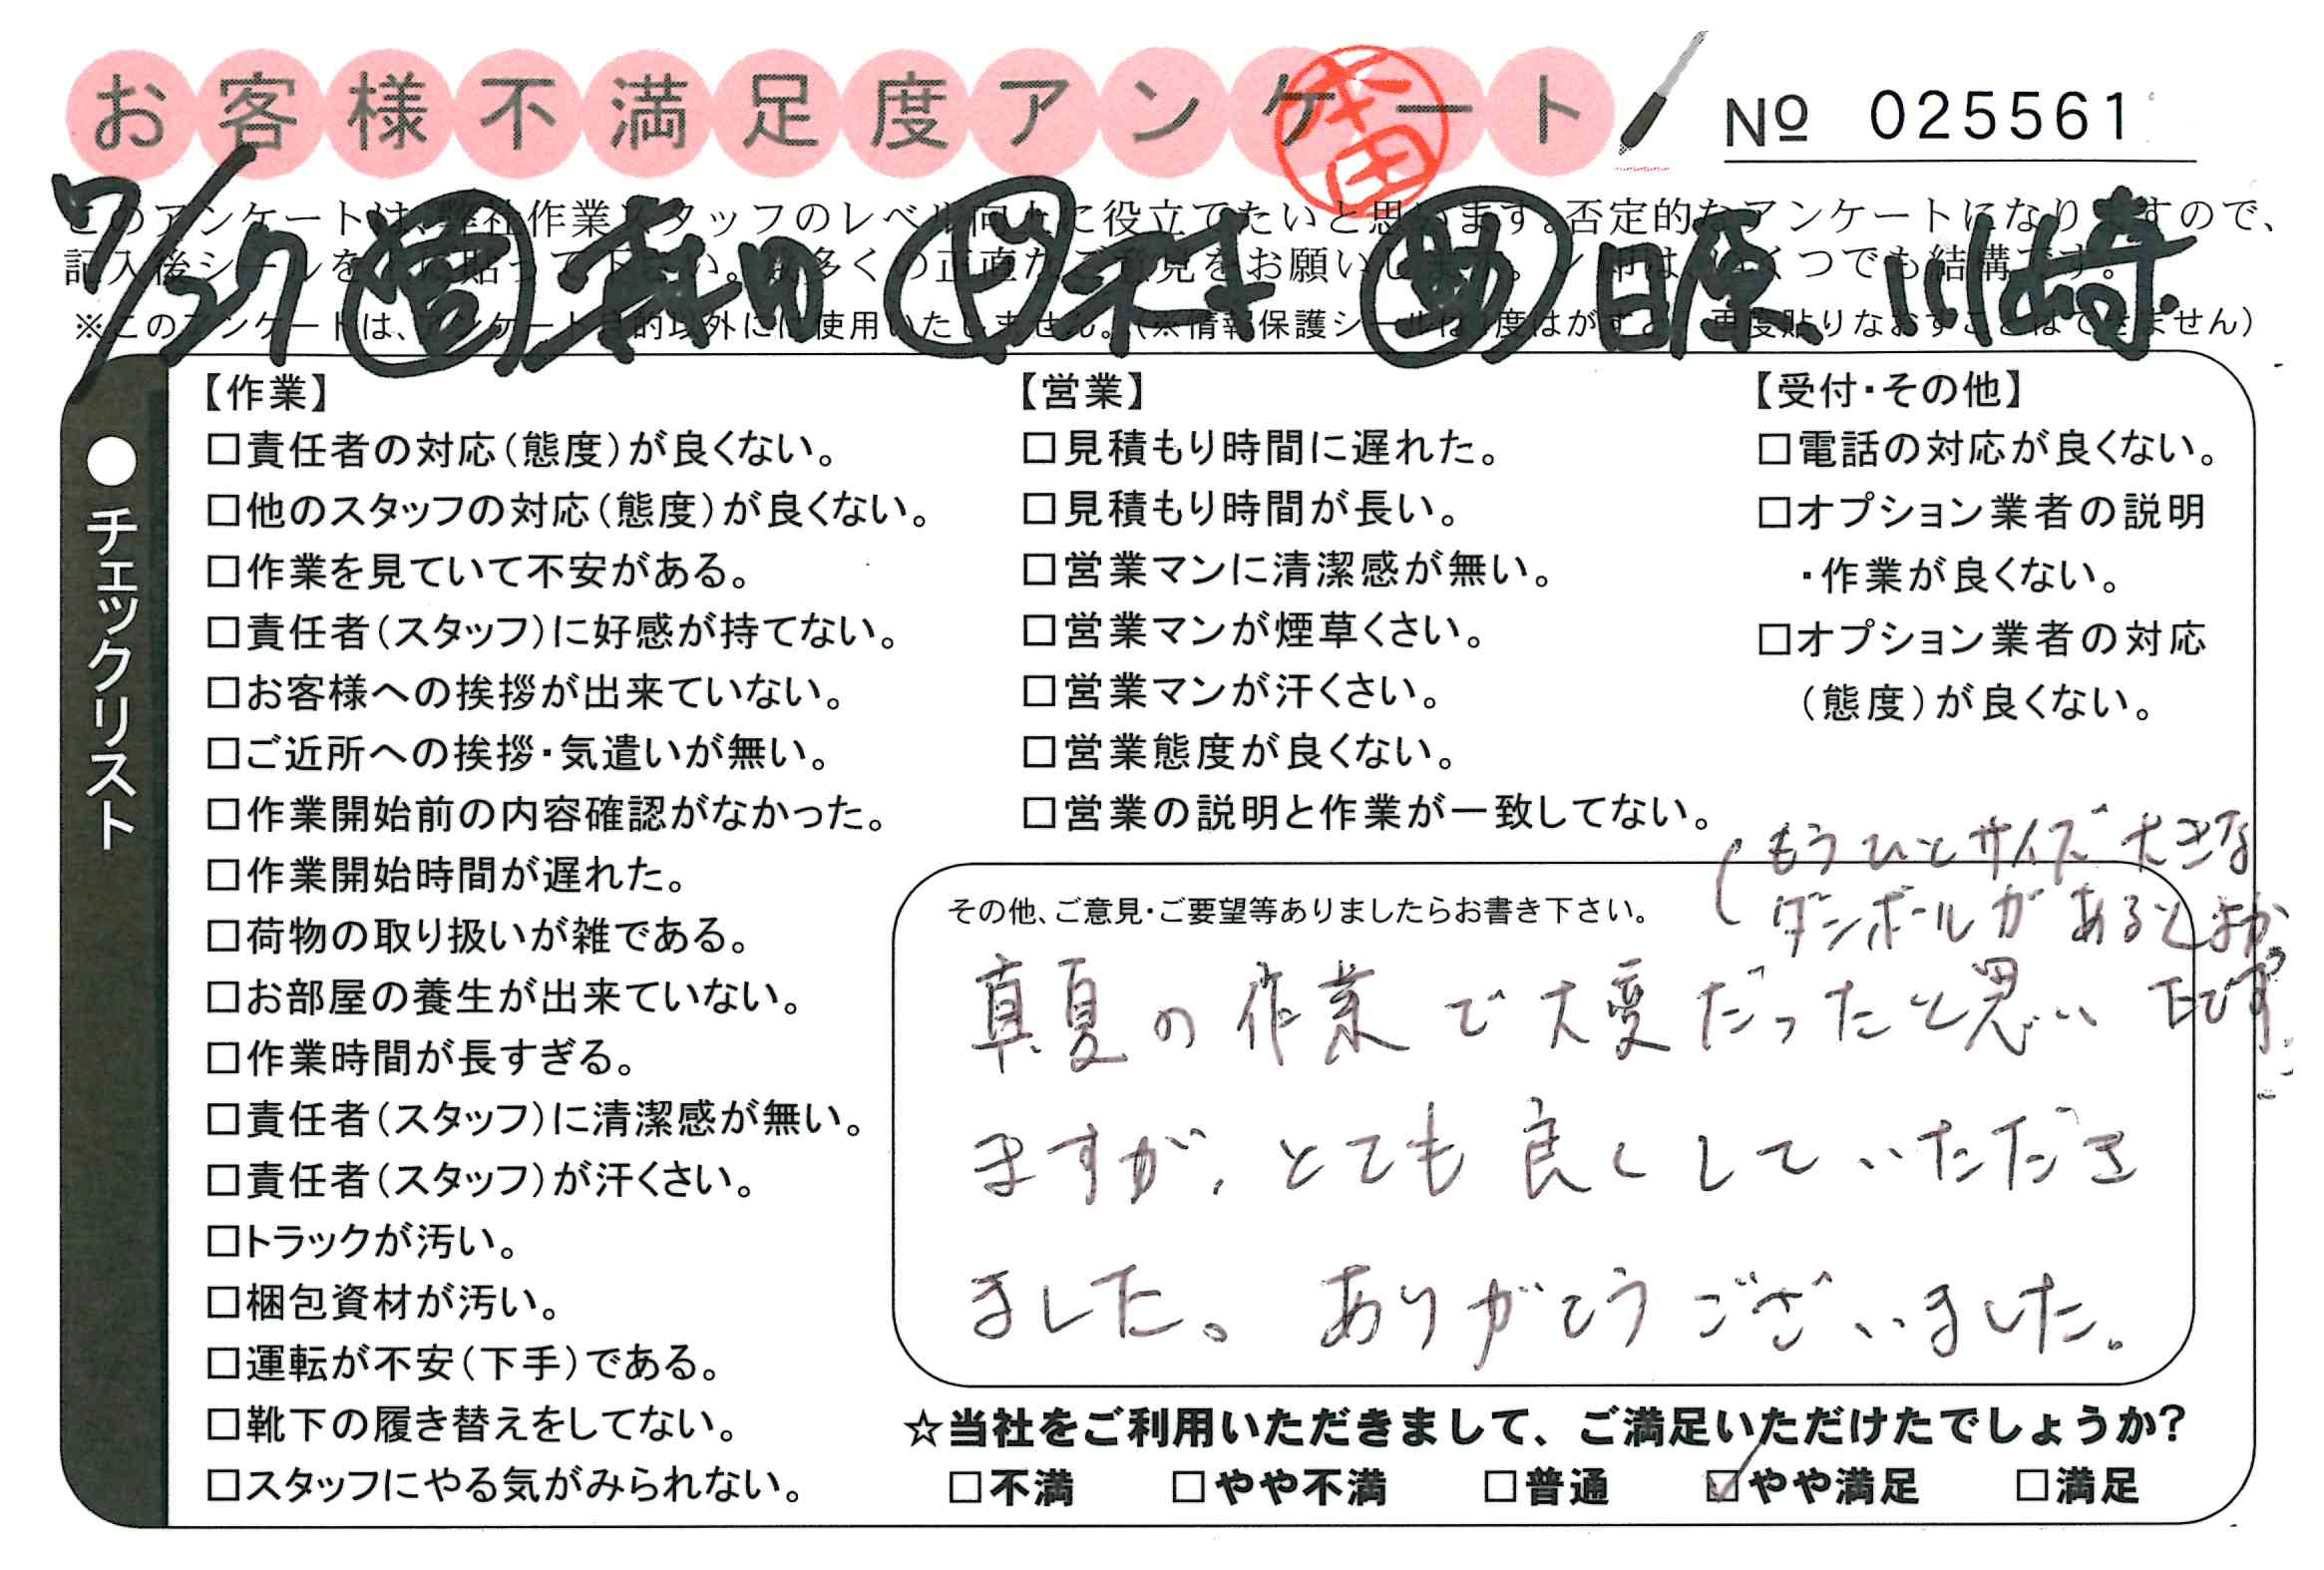 お客様不満足度アンケート
本田
№ 025561
このアンケートは、弊社作業スタッフのレベル向上に役立てたいと思います。否定的なアンケートになりますので、
記入後シールを 貼って下さい。 多くの正直なご意見をお願いします。レ印は、いくつでも結構です。
※このアンケートは、アンケート目的以外には使用いたしません。(※情報保護シールは1度はがすと、再度貼りなおすことはできません)
7/27 営 ド 木村 助 日原 川崎
●チェックリスト
【作業】
□責任者の対応(態度)が良くない。
□他のスタッフの対応(態度)が良くない。
□作業を見ていて不安がある。
□責任者(スタッフ)に好感が持てない。
□お客様への挨拶が出来ていない。
□ご近所への挨拶・気遣いが無い。
□作業開始前の内容確認がなかった。
□作業開始時間が遅れた。
□荷物の取り扱いが雑である。
□お部屋の養生が出来ていない。
□作業時間が長すぎる。
□責任者(スタッフ)に清潔感が無い。
□責任者(スタッフ)が汗くさい。
□トラックが汚い。
□梱包資材が汚い。
□運転が不安(下手)である。
□靴下の履き替えをしてない。
□スタッフにやる気がみられない。
【営業】
□見積もり時間に遅れた。
□見積もり時間が長い。
□営業マンに清潔感が無い。
□営業マンが煙草くさい。
□営業マンが汗くさい。
□営業態度が良くない。
□営業の説明と作業が一致してない。
【受付・その他】
□電話の対応が良くない。
□オプション業者の説明
・作業が良くない。
□オプション業者の対応
(態度)が良くない。
(もうひとサイズ大きな
ダンボールがあるとよかっ
たです。
その他、ご意見・ご要望等ありましたらお書き下さい。
真夏の作業で大変だったと思い
ますが、とても良くしていただき
ました。ありがとうございました。
☆当社をご利用いただきまして、ご満足いただけたでしょうか?
□不満 □やや不満 □普通 ☑やや満足 □満足